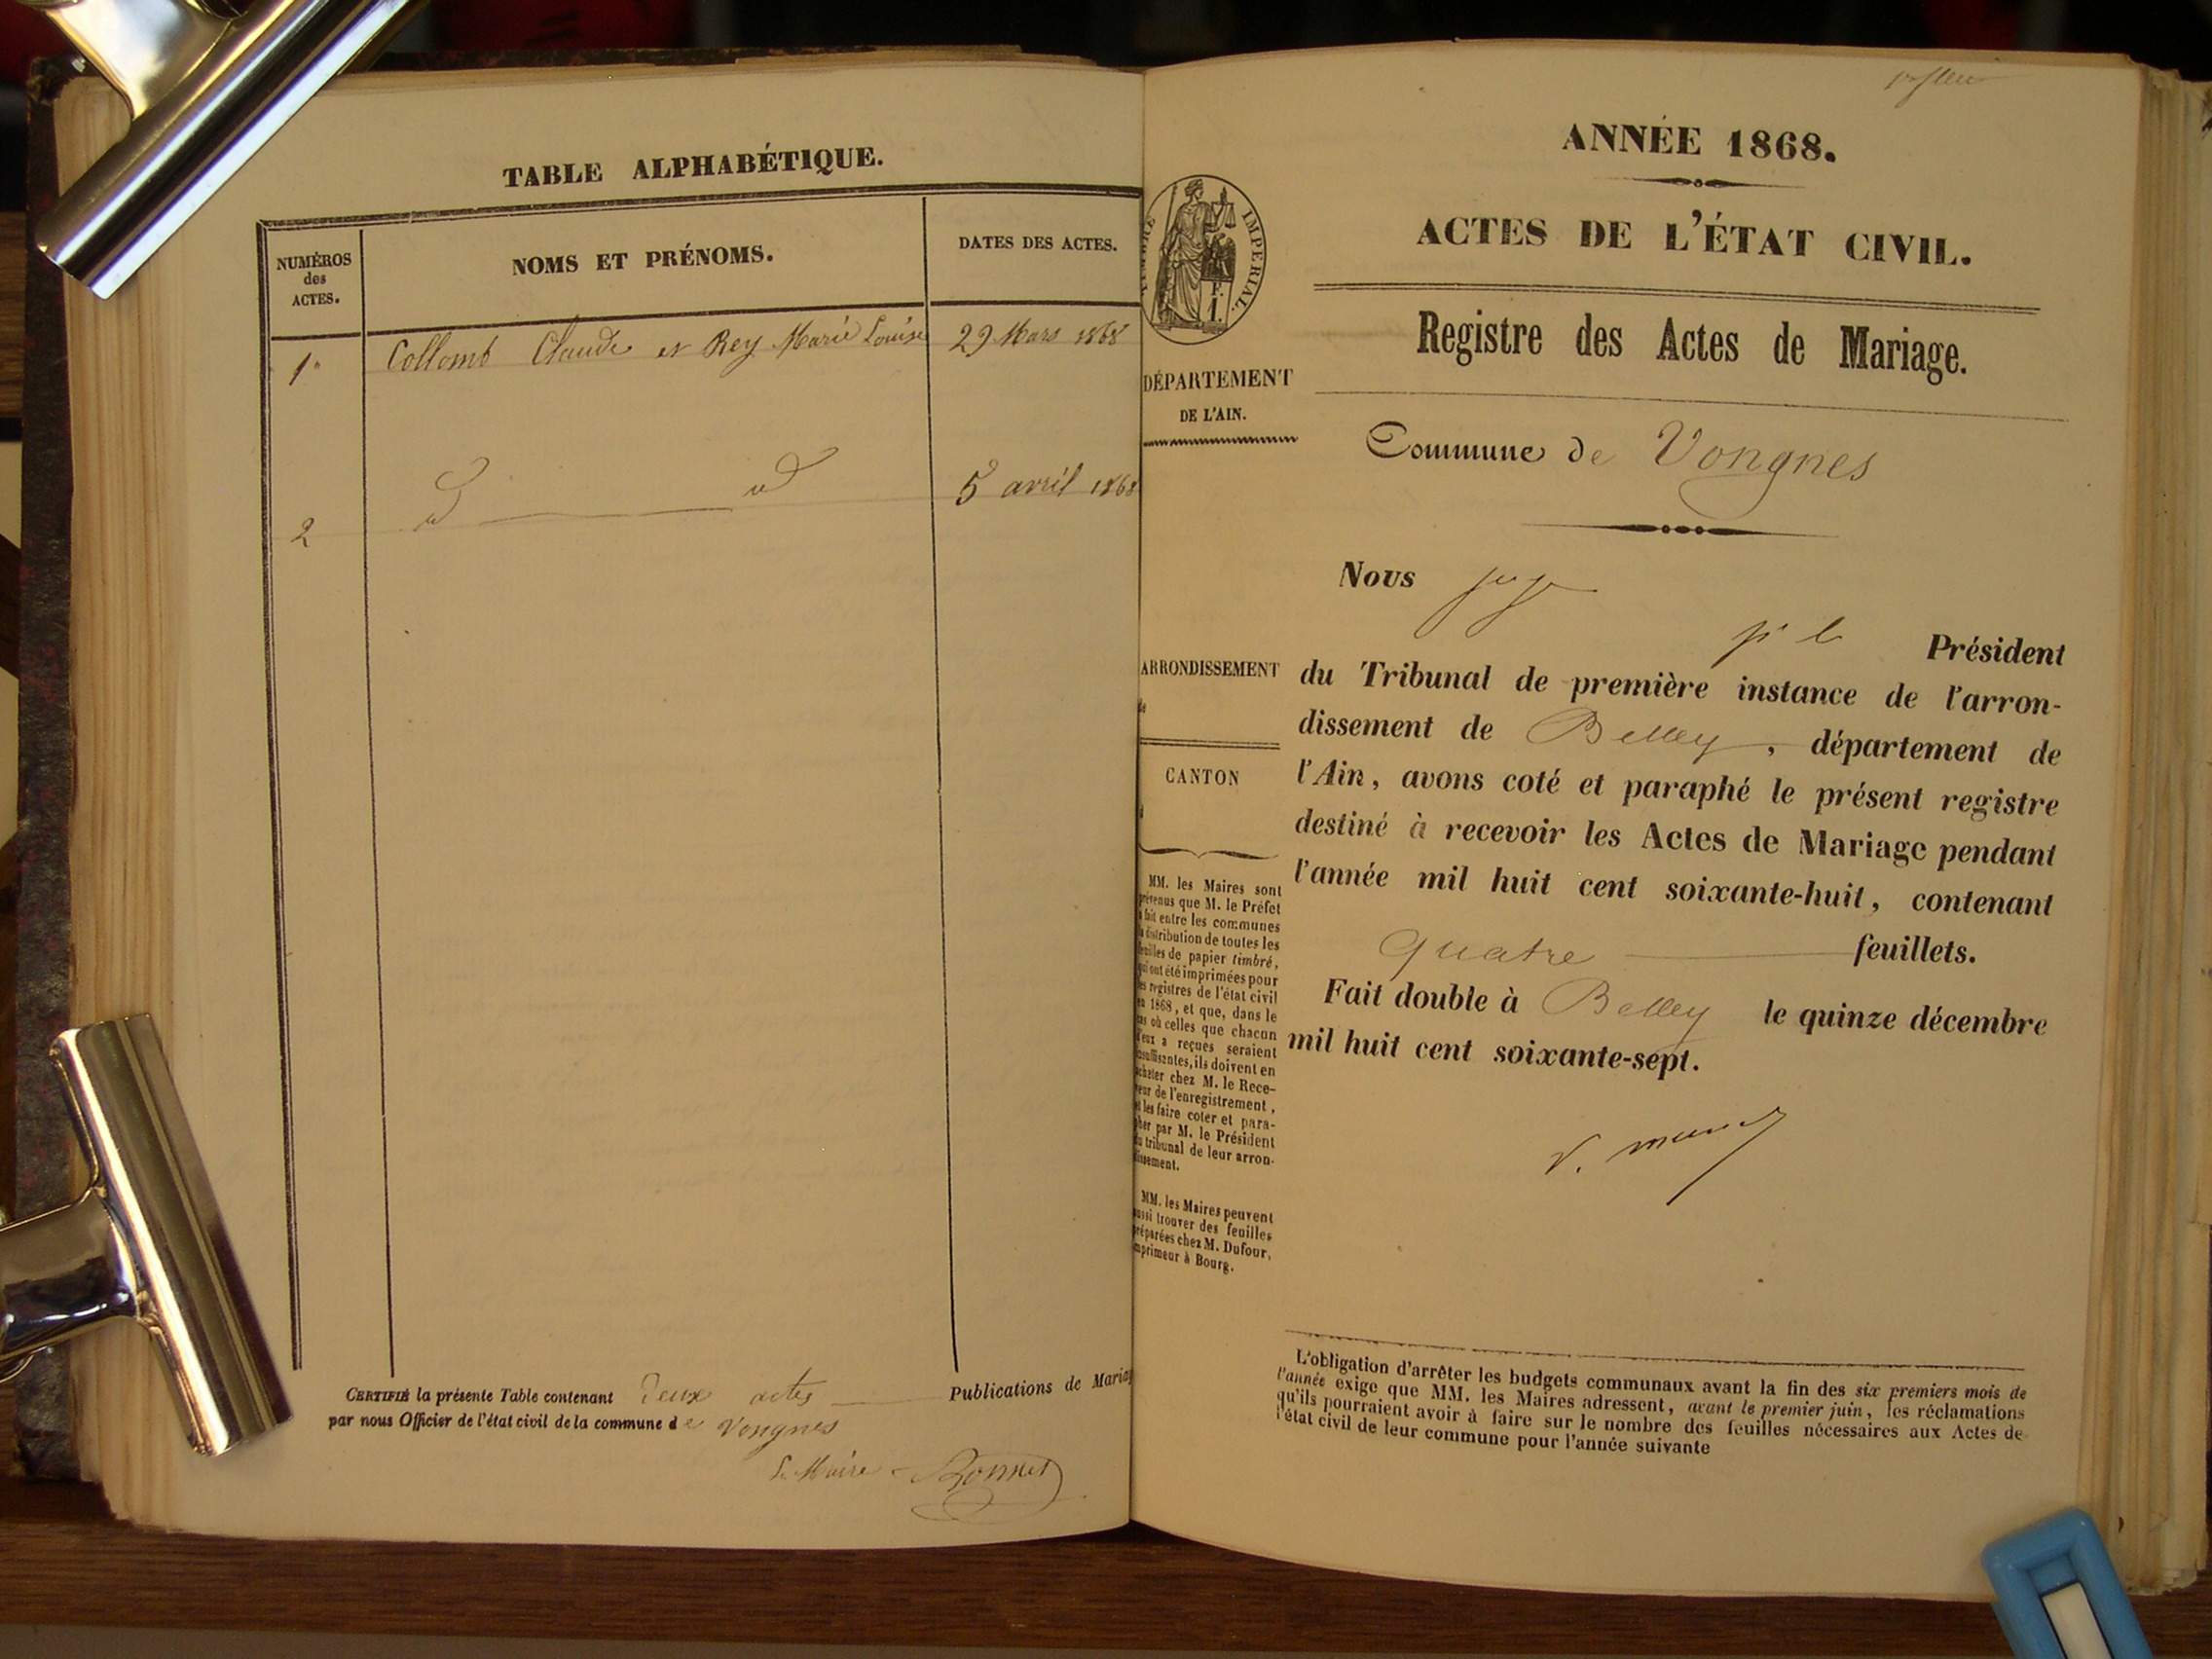 TABLE ALPHABÉTIQUE.
NUMÉROS des ACTES.
NOMS ET PRÉNOMS.
DATES DES ACTES.
1° Collomb Claude et Rey Marie Louise 29 Mars 1868
2 id id 5 avril 1868
CERTIFIÉ la présente Table contenant Deux actes Publications de Mariag
par nous Officier de l'état civil de la commune de Vongnes
Le Maire Bonnet
ANNÉE 1868.
ACTES DE L'ÉTAT CIVIL.
TIMBRE IMPÉRIAL.
Registre des Actes de Mariage.
DÉPARTEMENT
DE L'AIN.
Commune de Vongnes
Nous juge
pr le Président
ARRONDISSEMENT
de
CANTON
du Tribunal de première instance de l'arron-
dissement de Belley, département de
l'Ain, avons coté et paraphé le présent registre
destiné à recevoir les Actes de Mariage pendant
l'année mil huit cent soixante-huit, contenant
quatre feuillets.
Fait double à Belley le quinze décembre
mil huit cent soixante-sept.
MM. les Maires sont
prévenus que M. le Préfet
a fait entre les communes
la distribution de toutes les
feuilles de papier timbré,
qui ont été imprimées pour
les registres de l'état civil
en 1868, et que, dans le
cas où celles que chacun
d'eux a reçues seraient
insuffisantes, ils doivent en
acheter chez M. le Rece-
veur de l'enregistrement,
et les faire coter et para-
pher par M. le Président
du tribunal de leur arron-
dissement.
MM. les Maires peuvent
aussi trouver des feuilles
préparées chez M. Dufour,
imprimeur à Bourg.
L'obligation d'arrêter les budgets communaux avant la fin des six premiers mois de
l'année exige que MM. les Maires adressent, avant le premier juin, les réclamations
qu'ils pourraient avoir à faire sur le nombre des feuilles nécessaires aux Actes de
l'état civil de leur commune pour l'année suivante